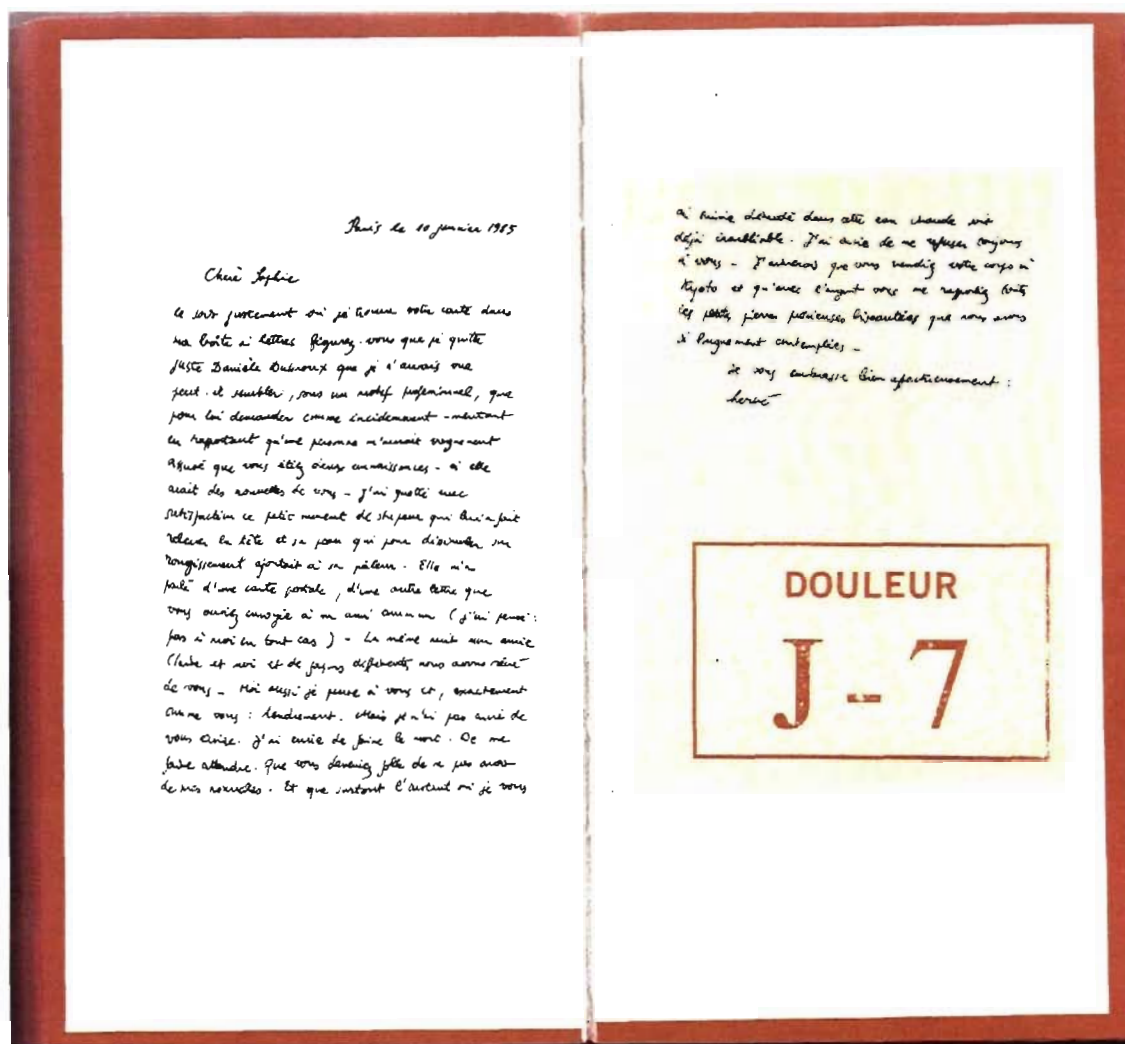 Paris le 10 janvier 1985
Chère Sophie
Ce soir justement où je trouve votre carte dans
ma boîte à lettres figurez-vous que je quitte
juste Danièle Dubroux que je n'aurais vue
peut-il sembler, sous un motif professionnel, que
pour lui demander comme incidemment - mentant
en rapportant qu'une personne m'aurait vaguement
assuré que vous étiez vieux connaissances - si elle
avait des nouvelles de vous - J'ai goûté avec
satisfaction ce petit moment de stupeur qui lui a fait
relever la tête et sa peau qui pour dissimuler son
rougissement ajoutait à sa pâleur. Elle m'a
parlé d'une carte postale, d'une autre lettre que
vous auriez envoyée à un ami commun (j'ai pensé :
pas à moi en tout cas) - La même nuit mon amie
Claire et moi et de façons différentes nous avons rêvé
de vous - Moi aussi je pense à vous et, exactement
comme vous : tendrement. Mais je n'ai pas envie de
vous écrire. J'ai envie de faire le mort. De me
faire attendre. Que vous deveniez folle de ne pas avoir
de mes nouvelles. Et que surtout l'instant où je vous
ai suivie dénudé dans cette eau chaude soit
déjà inoubliable. J'ai envie de me refuser toujours
à vous - J'aimerais que vous vendiez votre corps à
Kyoto et qu'avec l'argent vous me rapportiez toutes
ces petites pierres précieuses biseautées que nous avons
si longuement contemplées -
je vous embrasse bien affectueusement :
hervé
DOULEUR
J - 7